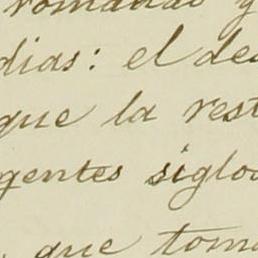 romando y
dias: el de
que la rest
gentes siglo
que toma